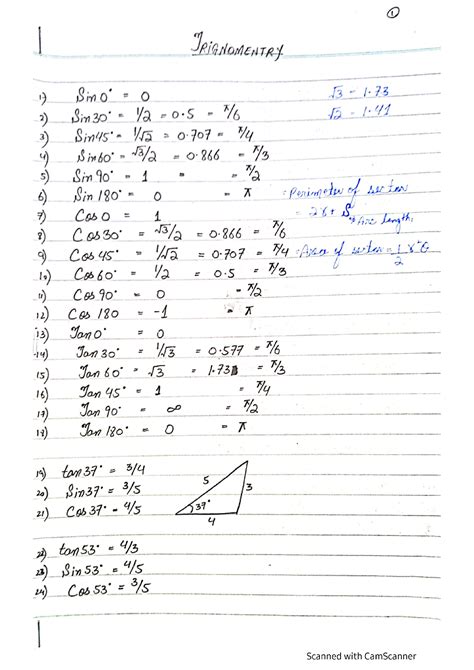 1
TRIGNOMENTRY
1) Sin 0° = 0
√3 - 1.73
2) Sin30° = 1/2 = 0.5 = π/6
√2 - 1.41
3) Sin45° = 1/√2 = 0.707 = π/4
4) Sin60° = √3/2 = 0.866 = π/3
5) Sin 90° = 1 = π/2
6) Sin 180° = 0 = π
Perimeter of sector
7) Cos 0 = 1
= 2r + S
Arc length
8) Cos30° = √3/2 = 0.866 = π/6
9) Cos 45° = 1/√2 = 0.707 = π/4
Area of sector = 1/2 r²θ
10) Cos 60° = 1/2 = 0.5 = π/3
11) Cos 90° = 0 = π/2
12) Cos 180 = -1 = π
13) Tan 0° = 0
14) Tan 30° = 1/√3 = 0.577 = π/6
15) Tan 60° = √3 = 1.73 = π/3
16) Tan 45° = 1 = π/4
17) Tan 90° = ∞ = π/2
18) Tan 180° = 0 = π
19) tan 37° = 3/4
20) Sin 37° = 3/5
21) Cos 37° = 4/5
5
3
37°
4
22) tan 53° = 4/3
23) Sin 53° = 4/5
24) Cos 53° = 3/5
Scanned with CamScanner